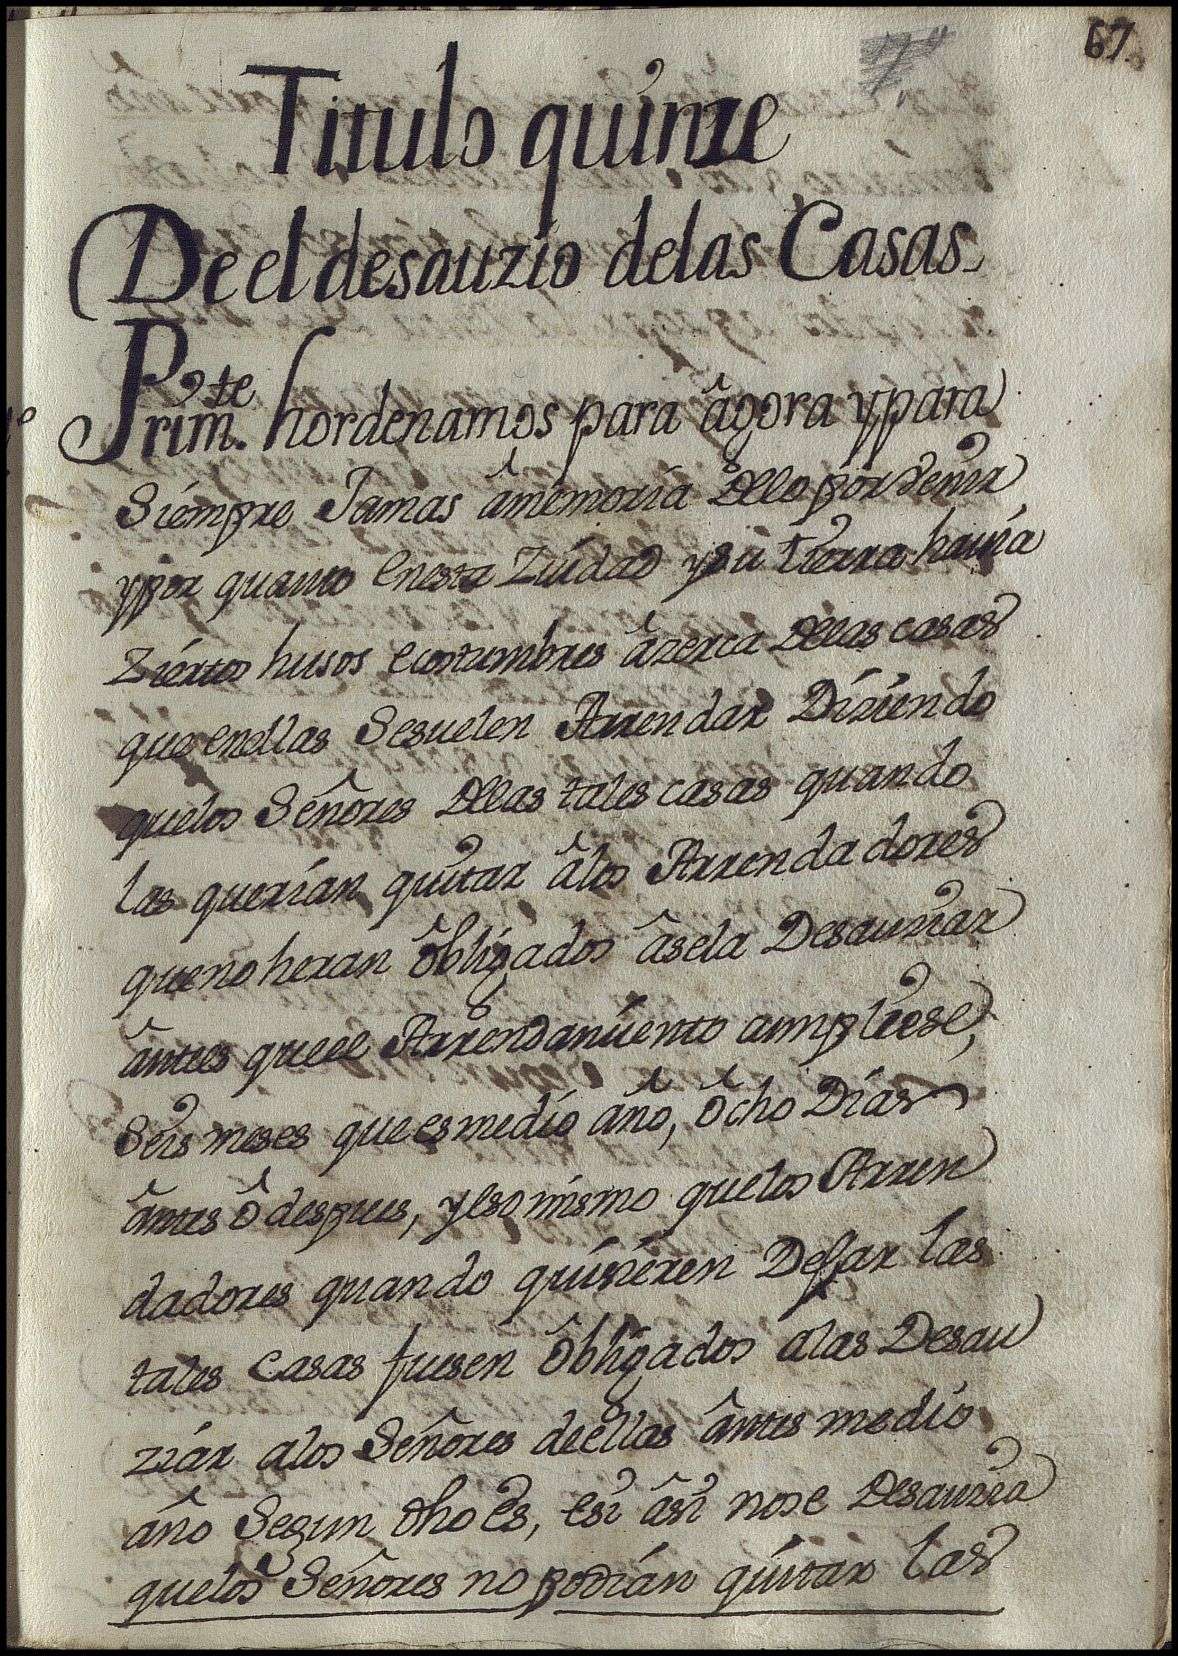 67.
Titulo quinze
De el desauzio delas Casas
Prim.te hordenamos para âgora y para
Siempre Jamas âmemoria dello por venir
y por quanto enesta Ziudad y su tierra hauia
Ziertos husos e costumbres âzerca dellas casas
que enellas Sesuelen Arrendar Diziendo
quelos Señores dellas tales casas quando
las querian quitar âlos Arrendadores
queno heran ôbligados âsela Desauziar
ântes queel Arrendamiento cumpliese,
Seis meses que es medio año, ôcho Dias
ântes ô despues, y eso mismo quelos Arren
dadores quando quisieren Dejar las
tales Casas fuesen ôbligados alas Desau
ziar alos Señores deellas ântes medio
año Segun dho es, esi âsi nose Desauzia
quelos Señores no podian quitar las